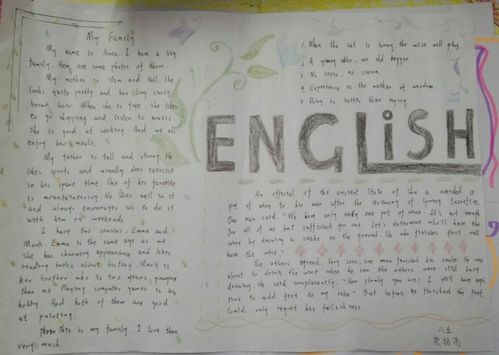 My Family
My name is Anna. I have a big
family. Here are some photos of them.
My mother is slim and tall. She
looks quite pretty and has long curly
brown hair. When she is free, she likes
to go shopping and listen to music.
She is good at cooking. And we all
enjoy her meals.
My father is tall and strong. He
likes sports and usually does exercise
in his spare time. One of his favorite
is mountaineering. He does well in it
and always encourage us to do it
with him on weekends.
I have two cousins, Emma and
Mark. Emma is the same age as me.
She has charming appearance and likes
reading books about history. Mark is
her brother who is two years younger
than us. Playing computer games is his
hobby. And both of them are good
at painting.
This is my family. I love them
very much.
1. When the cat is away, the mice will play
2. A young idler, an old beggar.
3. No cross, no crown.
4. Experience is the mother of wisdom.
5. Doing is better than saying.
ENGLiSH
An official of the ancient State of Chu awarded a
pot of wine to his men after the ceremony of Spring Sacrifice.
One man said: "We have only one pot of wine. It's not enough
for all of us but sufficient for one. Let's determine who'll have the
wine by drawing a snake on the ground. He who finishes first will
have the wine."
The others agreed. Very soon, one man finished his snake. He was
about to drink the wine when he saw the others were still busy
drawing. He said complacently, "How slowly you are! I still have enough
time to add feet to my snake." But before he finished the feet,
could only regret his foolishness.
八五